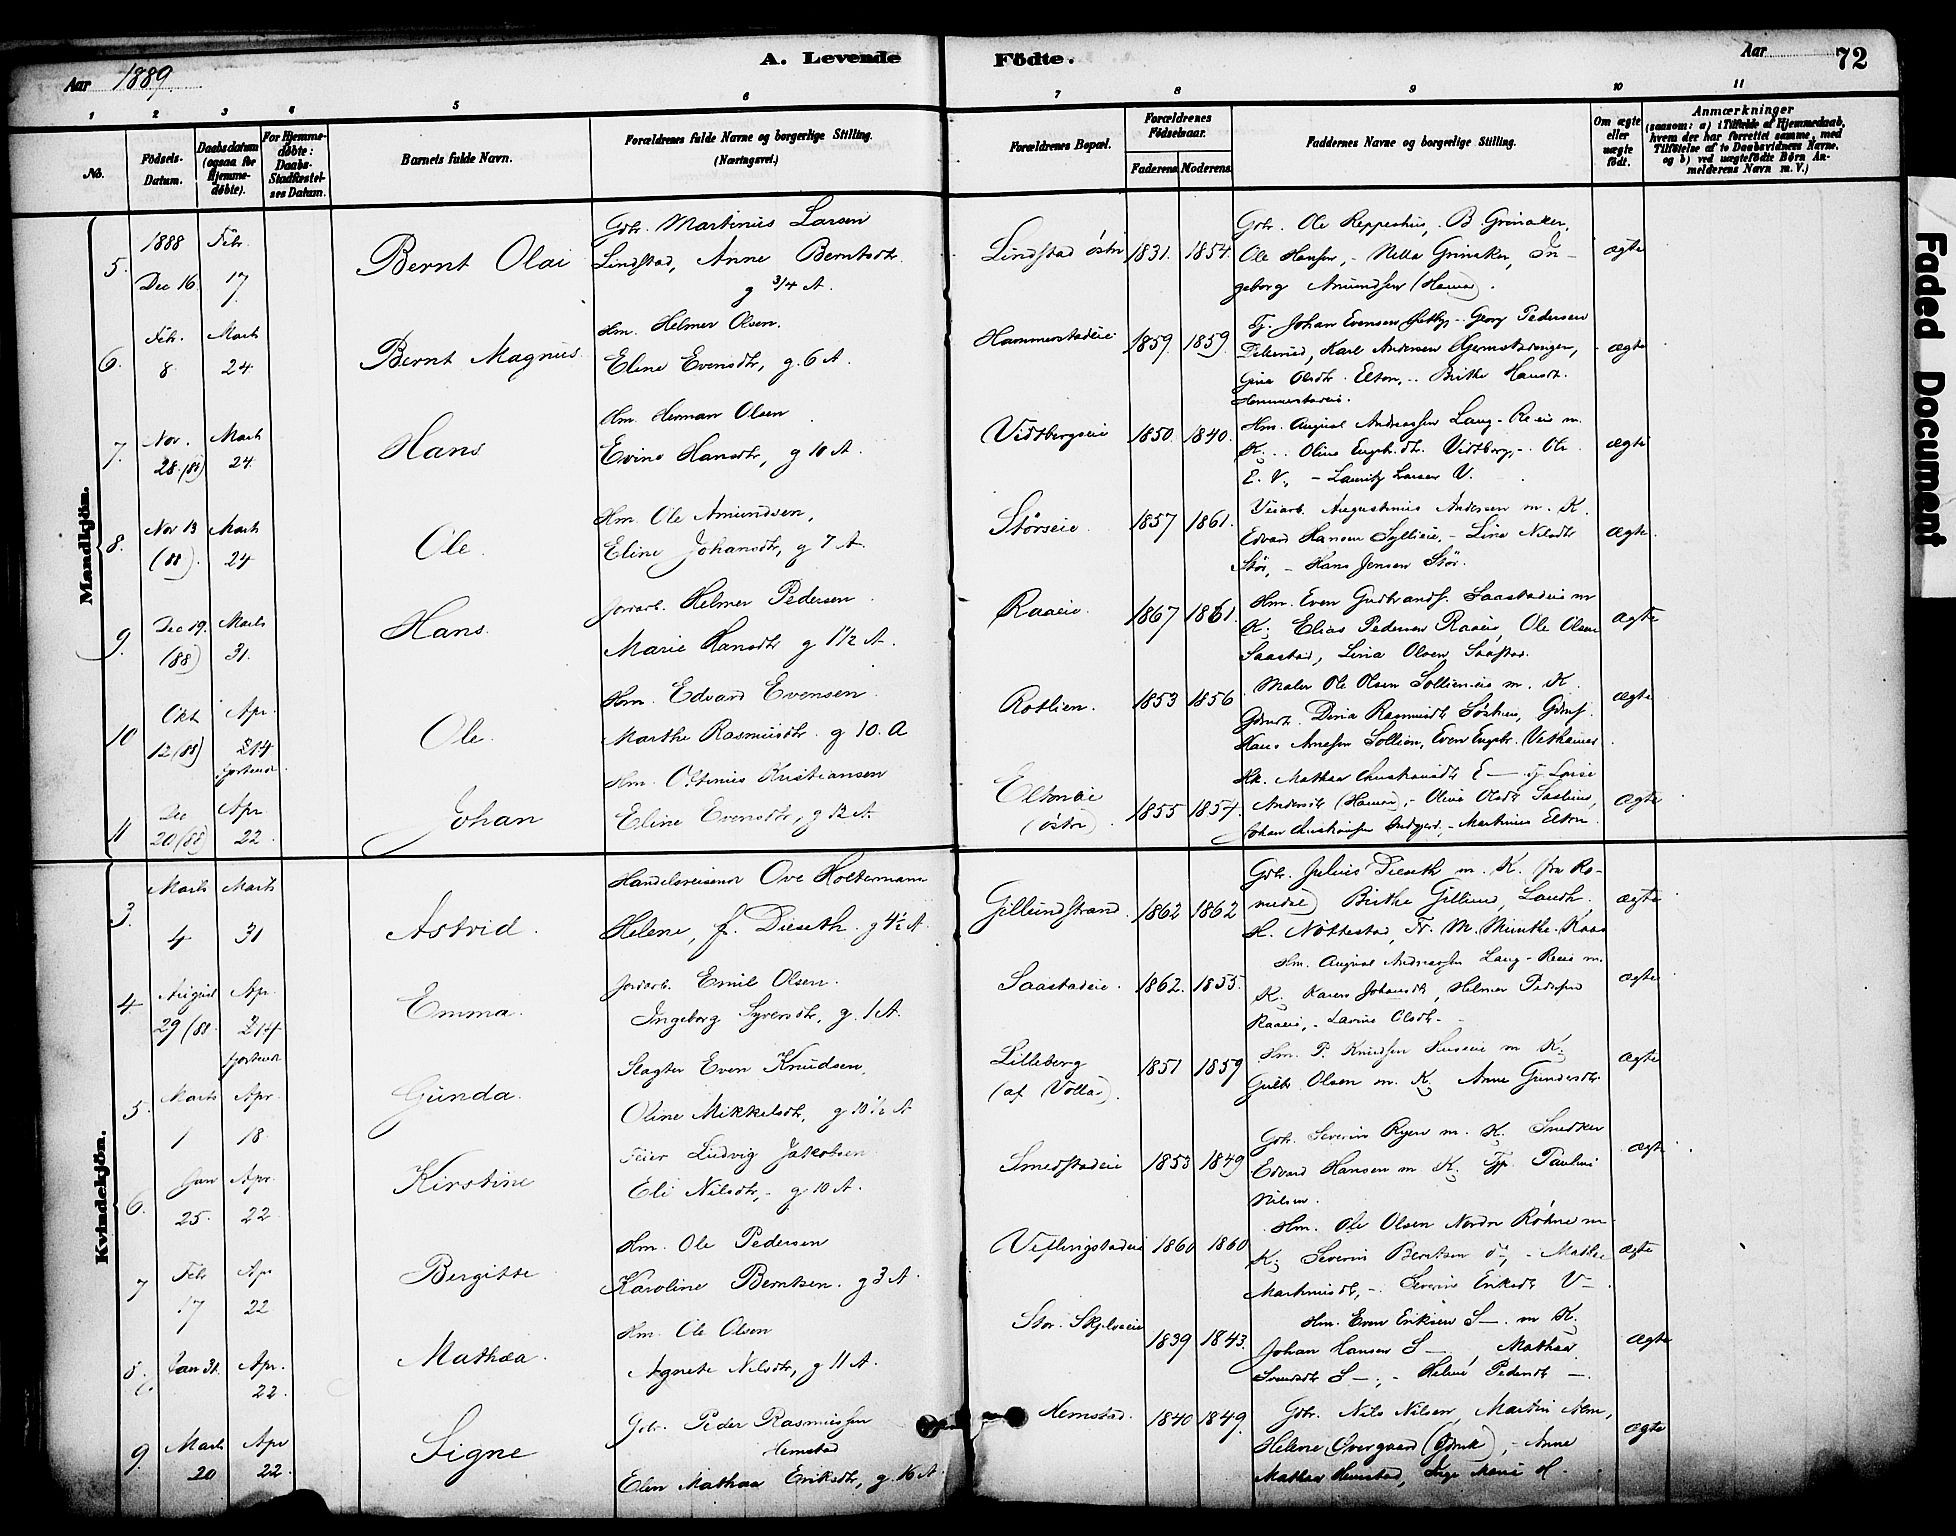 Aar 1889.
A. Levende
Födte.
Aar
72
1
2
3
4
5
6
7
8
9
10
11
No.
Födsels-
Datum.
Daabsdatum
(ogsaa for
Hjemme-
døbte).
For Hjemme-
døbte:
Daabs-
Stadfæstel-
ses Datum.
Barnets fulde Navn.
Forældrenes fulde Navne og borgerlige Stilling.
(Næringsvei.)
Forældrenes Bopæl.
Forældrenes
Födselsaar.
Faderens
Moderens
Faddernes Navne og borgerlige Stilling.
Om ægte
eller
uægte
født.
Anmærkninger
(saasom: a) i Tilfælde af Hjemmedaab,
hvem der har forrettet samme, med
Tilföielse af to Daabsvidners Navne,
og b) ved uægtefödte Börn An-
melderens Navn m. V.)
Mandkjön.
5.
1888
Dec 16.
Febr.
17
Bernt Olai
Gbr. Martinius Larsen
Lindstad, Anne Berntsdtr.
g 3/4 A.
Lindstad östr
1831.
1854.
Ole Hansen, - Nella Grinaker, In-
geborg Amundsen (Hamar).
ægte
6.
Febr.
8
Marts
24
Bernt Magnus
Hm. Helmer Olsen.
Eline Evensdtr, g. 6 A.
Hammerstadeie
1859.
1859.
Georg Pedersen
Karl Andersen
Gina Olsdtr. Elton, - Birthe Hansdt.
Hammerstadeie.
ægte
7.
Nov.
28. (88)
Marts
24.
Hans
Hm. Herman Olsen
Evine Hansdtr, g 10 A.
Vidtbergseie
1850.
1840.
Hm. August Andreassen Lang-Reeie m.
K. - Oline Engebr.dtr. Vidtberg, - Ole
E. V., - Lauritz Larsen V.
ægte
8.
Nov 13
(88).
Marts
24
Ole.
Hm. Ole Amundsen,
Eline Johansdtr, g 7 A.
Störseie.
1857
1861.
Veiarb. Augustinus Andersen m. K.
Edvard Hansen Lina Nilsdtr
Stör, - Hans Jensen Stör.
ægte.
9.
Dec 19.
(88)
Marts
31.
Hans.
Jordarb. Helmer Pedersen.
Marie Hansdtr g 1 1/2 A.
Raaeie.
1867
1861.
Hm. Even Gudbrands. Saastadeie m
K. Elias Pedersen Raaeie, Ole Olsen
Saastad, Lina Olsen Saastad.
ægte
10
Okt
12 (88)
Apr.
14
Ole.
Hm. Edvard Evensen.
Marthe Rasmusdtr. g 10. A
Rotlien.
1853
1856
Maler Ole Olsen Sollieneie m. K.
Dina Rasmusdt
Hans Arnesen Sollien, Even Engebr.
ægte
11
Dec
20 (88)
Apr.
22.
Johan
Hm. Kristiansen
Eline Evensdtr, g 12 A.
Eltoneie
(östr).
1855
1854.
Andersdt (Hamar), - Oline Olsdt
Martinus Elton.
ægte
Kvindekjön.
3.
Marts
4
Marts
31
Astrid.
Handelsreisende Ove Holtermann
Helene, f. Dieseth. g 4 1/2 A.
Gillundstrand.
1862
1862
Gbr. Julius Dieseth m. K. fra Ro-
medal) Birthe Gillund, Landh.
H. Nöttestad, Fr. M. Minthe-Kaas
ægte
4
August
29 (88.
Apr.
14
Emma.
Jordarb. Emil Olsen.
Ingeborg Syversdtr, g. 1 A.
Saastadeie.
1862.
1855.
Hm. August Andreassen Lang-Reeie m.
K. Karen Johansdt, Helmer Peders.
Raaeie, - Lovise Olsdt.
ægte
5.
Marts
1
Apr.
18.
Gunda.
Slagter Even Knudsen,
Oline Mikkelsdtr, g 10 1/2 A
Lilleberg
(af Vollar).
1851
1859
Hm. P. Knudsen Huseeie m K.
Gulbr Olsen m. K. Anne Gundersdtr
ægte
6.
Jan
25.
Apr.
22
Kirstine
Feier Ludvig Jakobsen
Eli Nilsdtr, - g 10 A.
Smedstadeie
1853
1849
Gbr. Severin Ryen m. K. Snedker
Edvard Hansen m K. Tjp. Pauline
Nilsen.
ægte
7
Febr
17
Apr
22
Bergitte
Hm. Ole Pedersen
Karoline Berntsen. g 3 A.
Veflingstadeie
1860
1860
Hm. Ole Olsen Nordre Röhne m.
K. Severin Berntsen Mathea
Martinusdt, - Severine Eriksdt V-
ægte
8.
Jan 31.
Apr.
22.
Mathea.
Hm. Ole Olsen
Agnete Nilsdtr, g 11 A.
Stor. Skjelveie
1839
1843.
Hm. Even Eriksen S-. m K.
Johan Hansen S-, Mathea
Svendsdt S-, - Helene Pedersdt -.
ægte
9
Marts
20
Apr
22.
Signe
Gbr. Peder Rasmussen
Hemstad
Elen Mathea Eriksdtr, g. 16 A.
Hemstad.
1840
1849.
Gbr. Nils Nilsen, Martin Alm,
Helene Övergaard (Gbruk), - Anne
Mathea Hemstad, Inge Marie H.
ægte
Faded Document